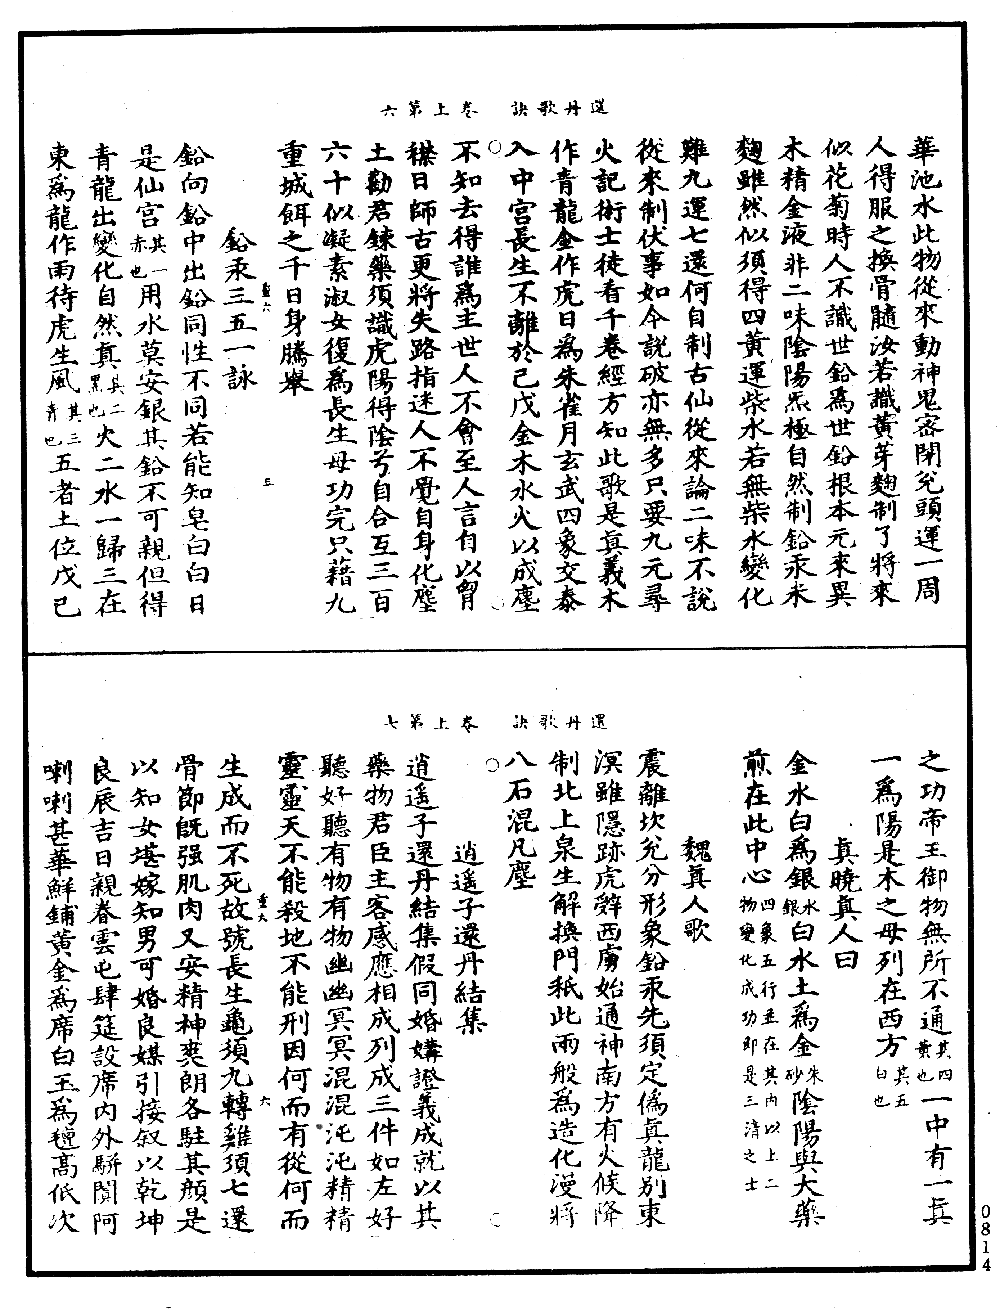 還丹歌訣 卷上第六
華池水此物從來動神鬼密閉兌頭運一周
人得服之換骨髓汝若識黃芽麹制了將來
似花菊時人不識世鉛為世鉛根本元來異
木精金液非二味陰陽炁極自然制鉛汞未
麹雖然似須得四黃運柴水若無柴水變化
難九運七還何自制古仙從來論二味不說
從來制伏事如今說破亦無多只要九元尋
火記術士徒看千卷經方知此歌是真義木
作青龍金作虎日為朱雀月玄武四象交泰
入中宮長生不離於己戊金木水火以成塵
不知去得誰為主世人不會至人言自以胷
襟日師古更將失路指迷人不覺自身化塵
土勸君鍊藥須識虎陽得陰兮自合互三百
六十似凝素淑女復為長生母功完只藉九
重城餌之千日身騰舉
鉛汞三五一詠
鉛向鉛中出鉛同性不同若能知皂白白日
是仙宮其一赤也用水莫安銀其鉛不可親但得
青龍出變化自然真其二黑也火二水一歸三在
東為龍作雨待虎生風其三青也五者土位戊己
還丹歌訣 卷上第七
之功帝王御物無所不通其四黃也一中有一真
一為陽是木之母列在西方其五白也
真曉真人曰
金水白為銀水銀白水土為金朱砂陰陽與大藥
煎在此中心四象五行並在其內以上二物變化成功即是三清之士
魏真人歌
震離坎兌分形象鉛汞先須定偽真龍別東
溟雖隱跡虎辭西虜始通神南方有火候降
制北上泉生解換門秖此兩般為造化漫將
八石混凡塵
逍遙子還丹結集
逍遙子還丹結集假同婚媾證義成就以其
藥物君臣主客感應相成列成三件如左好
聽好聽有物有物幽幽冥冥混混沌沌精精
靈靈天不能殺地不能刑因何而有從何而
生成而不死故號長生龜須九轉雞須七還
骨節既强肌肉又安精神爽朗各駐其顏是
以知女堪嫁知男可婚良媒引接叙以乾坤
良辰吉日親春雲屯肆筵設席內外駢闐阿
喇喇甚華鮮鋪黃金為席白玉為氊高低次
0814